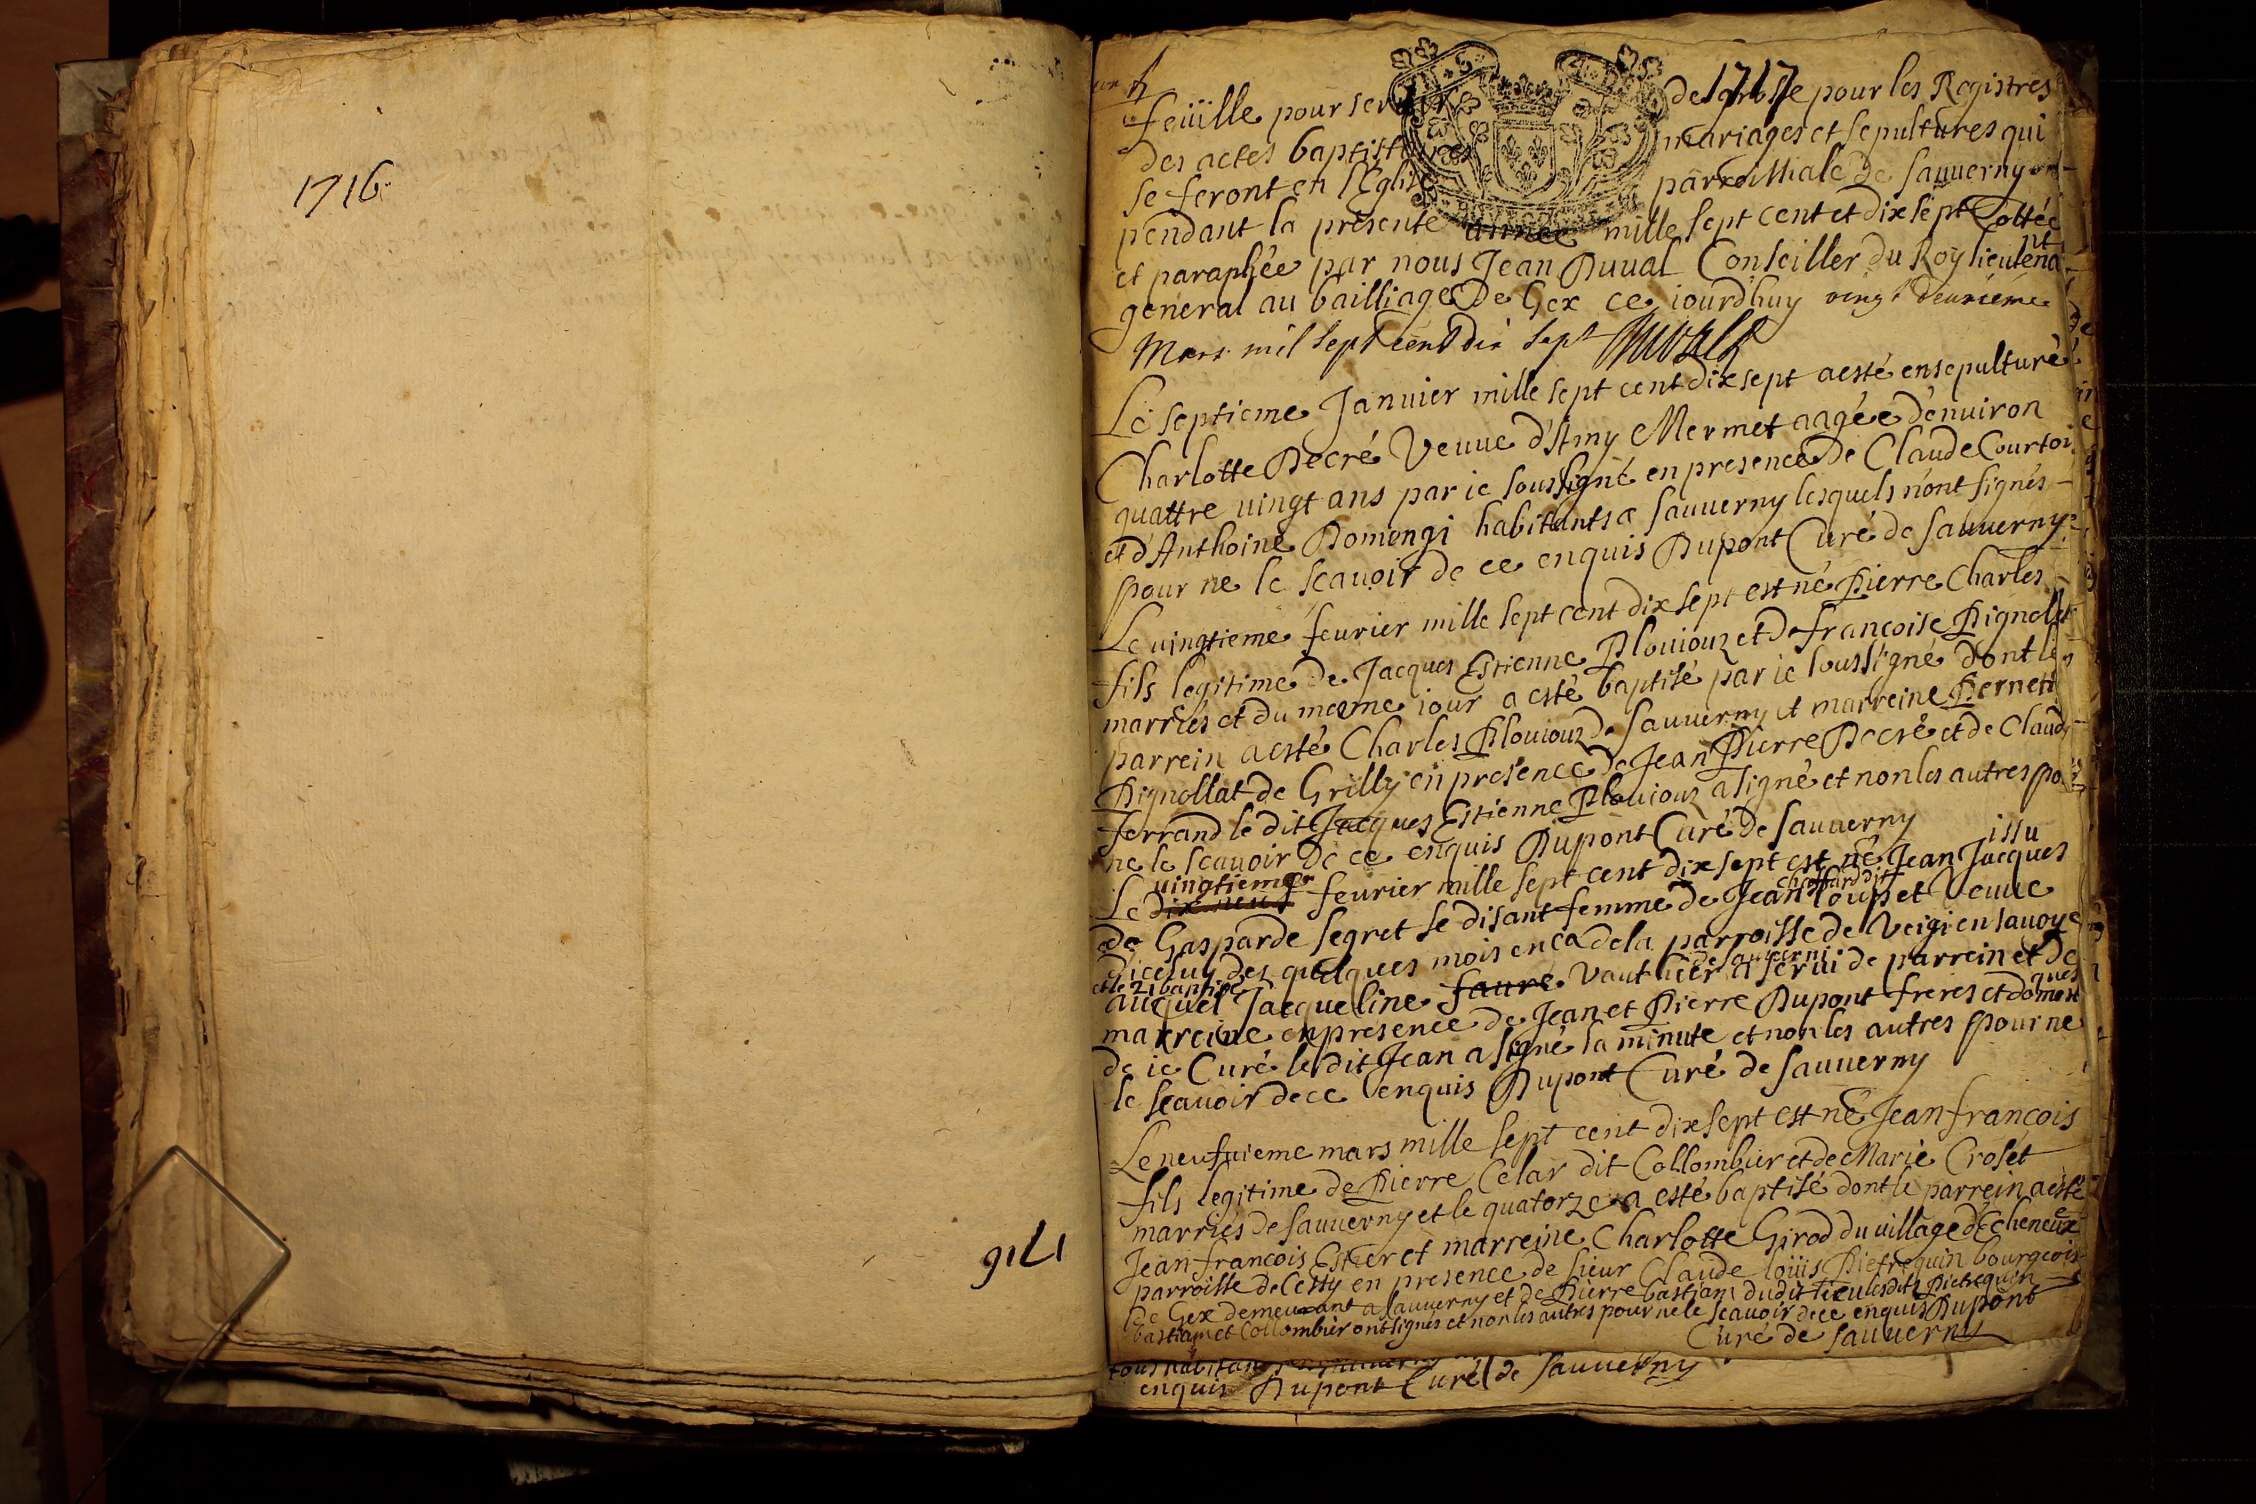 1716
1716
1717
feüille pour servir de grosse pour les Registres
des actes baptistaires mariages et sepultures qui
se feront en l'Eglise parroissiale de sauuerny
pendant la presente année mille sept cent et dix sept Cottée
et paraphée par nous Jean Duual Conseiller du Roÿ lieutenant
general au bailliage De Gex ce iourd'huy vingt deuxieme
Mars mil sept cent dix sept Duval
Le septieme Januier mille sept cent dix sept a esté ensepulturé
Charlotte Decré Veuue d'Amy Mermet aagée d'enuiron
quattre uingt ans par ie soussigné en presence De Claude Courtoi
et d'Anthoine Domengi habitants a sauuerny lesquels n'ont signés
pour ne le scauoir de ce enquis Dupont Curé de sauuerny
Le uingtieme feurier mille sept cent dix sept est né Pierre Charles
fils legitime de Jacques Estienne Plouiouz et de francoise Pignollat
marriés et du mesme iour a esté baptisé par ie soussigné dont le
parrein a esté Charles Plouiouz de sauuerny et marreine Pernett
Pignollat de Grilly en presence de Jean Pierre Decré et de Claud
ferrand le dit Jacques Estienne Plouiouz a signé et non les autres po
ne le scauoir de ce enquis Dupont Curé de sauuerny
issu
Le dix neuf uingtieme feurier mille sept cent dix sept est né Jean Jacques
de Gasparde segret se disant femme de Jean chaffard dit Loup et Veuue
d'iceluy des quelques mois en ca de la parroisse de Veigi en sauoye
et le 21 baptisé auquel Jacqueline faure Vautier de sauuerni a serui de parrein et de
marreine en presence de Jean et Pierre Dupont freres et domestiques
de ie Curé le dit Jean a signé la minute et non les autres pour ne
le scauoir de ce enquis Dupont Curé de sauuerny
Le neufuieme mars mille sept cent dix sept est né Jean francois
fils legitime de Pierre Celar dit Collombier et de Marie Croset
marriés de sauuerny et le quatorze a esté baptisé dont le parrein a esté
Jean francois Estier et marreine Charlotte Girod du uillage d'Echeneuex
parroisse de Cessy en presence de sieur Claude loüis Pietrequin bourgeois
de Gex demeurant a sauuerny et de Pierre bastian dudit lieu lesdits Pietrequin
bastian et Collombier ont signés et non les autres pour ne le scauoir de ce enquis Dupont
Curé de sauuerny
tous habitans
enquis Dupont Curé de sauuerny